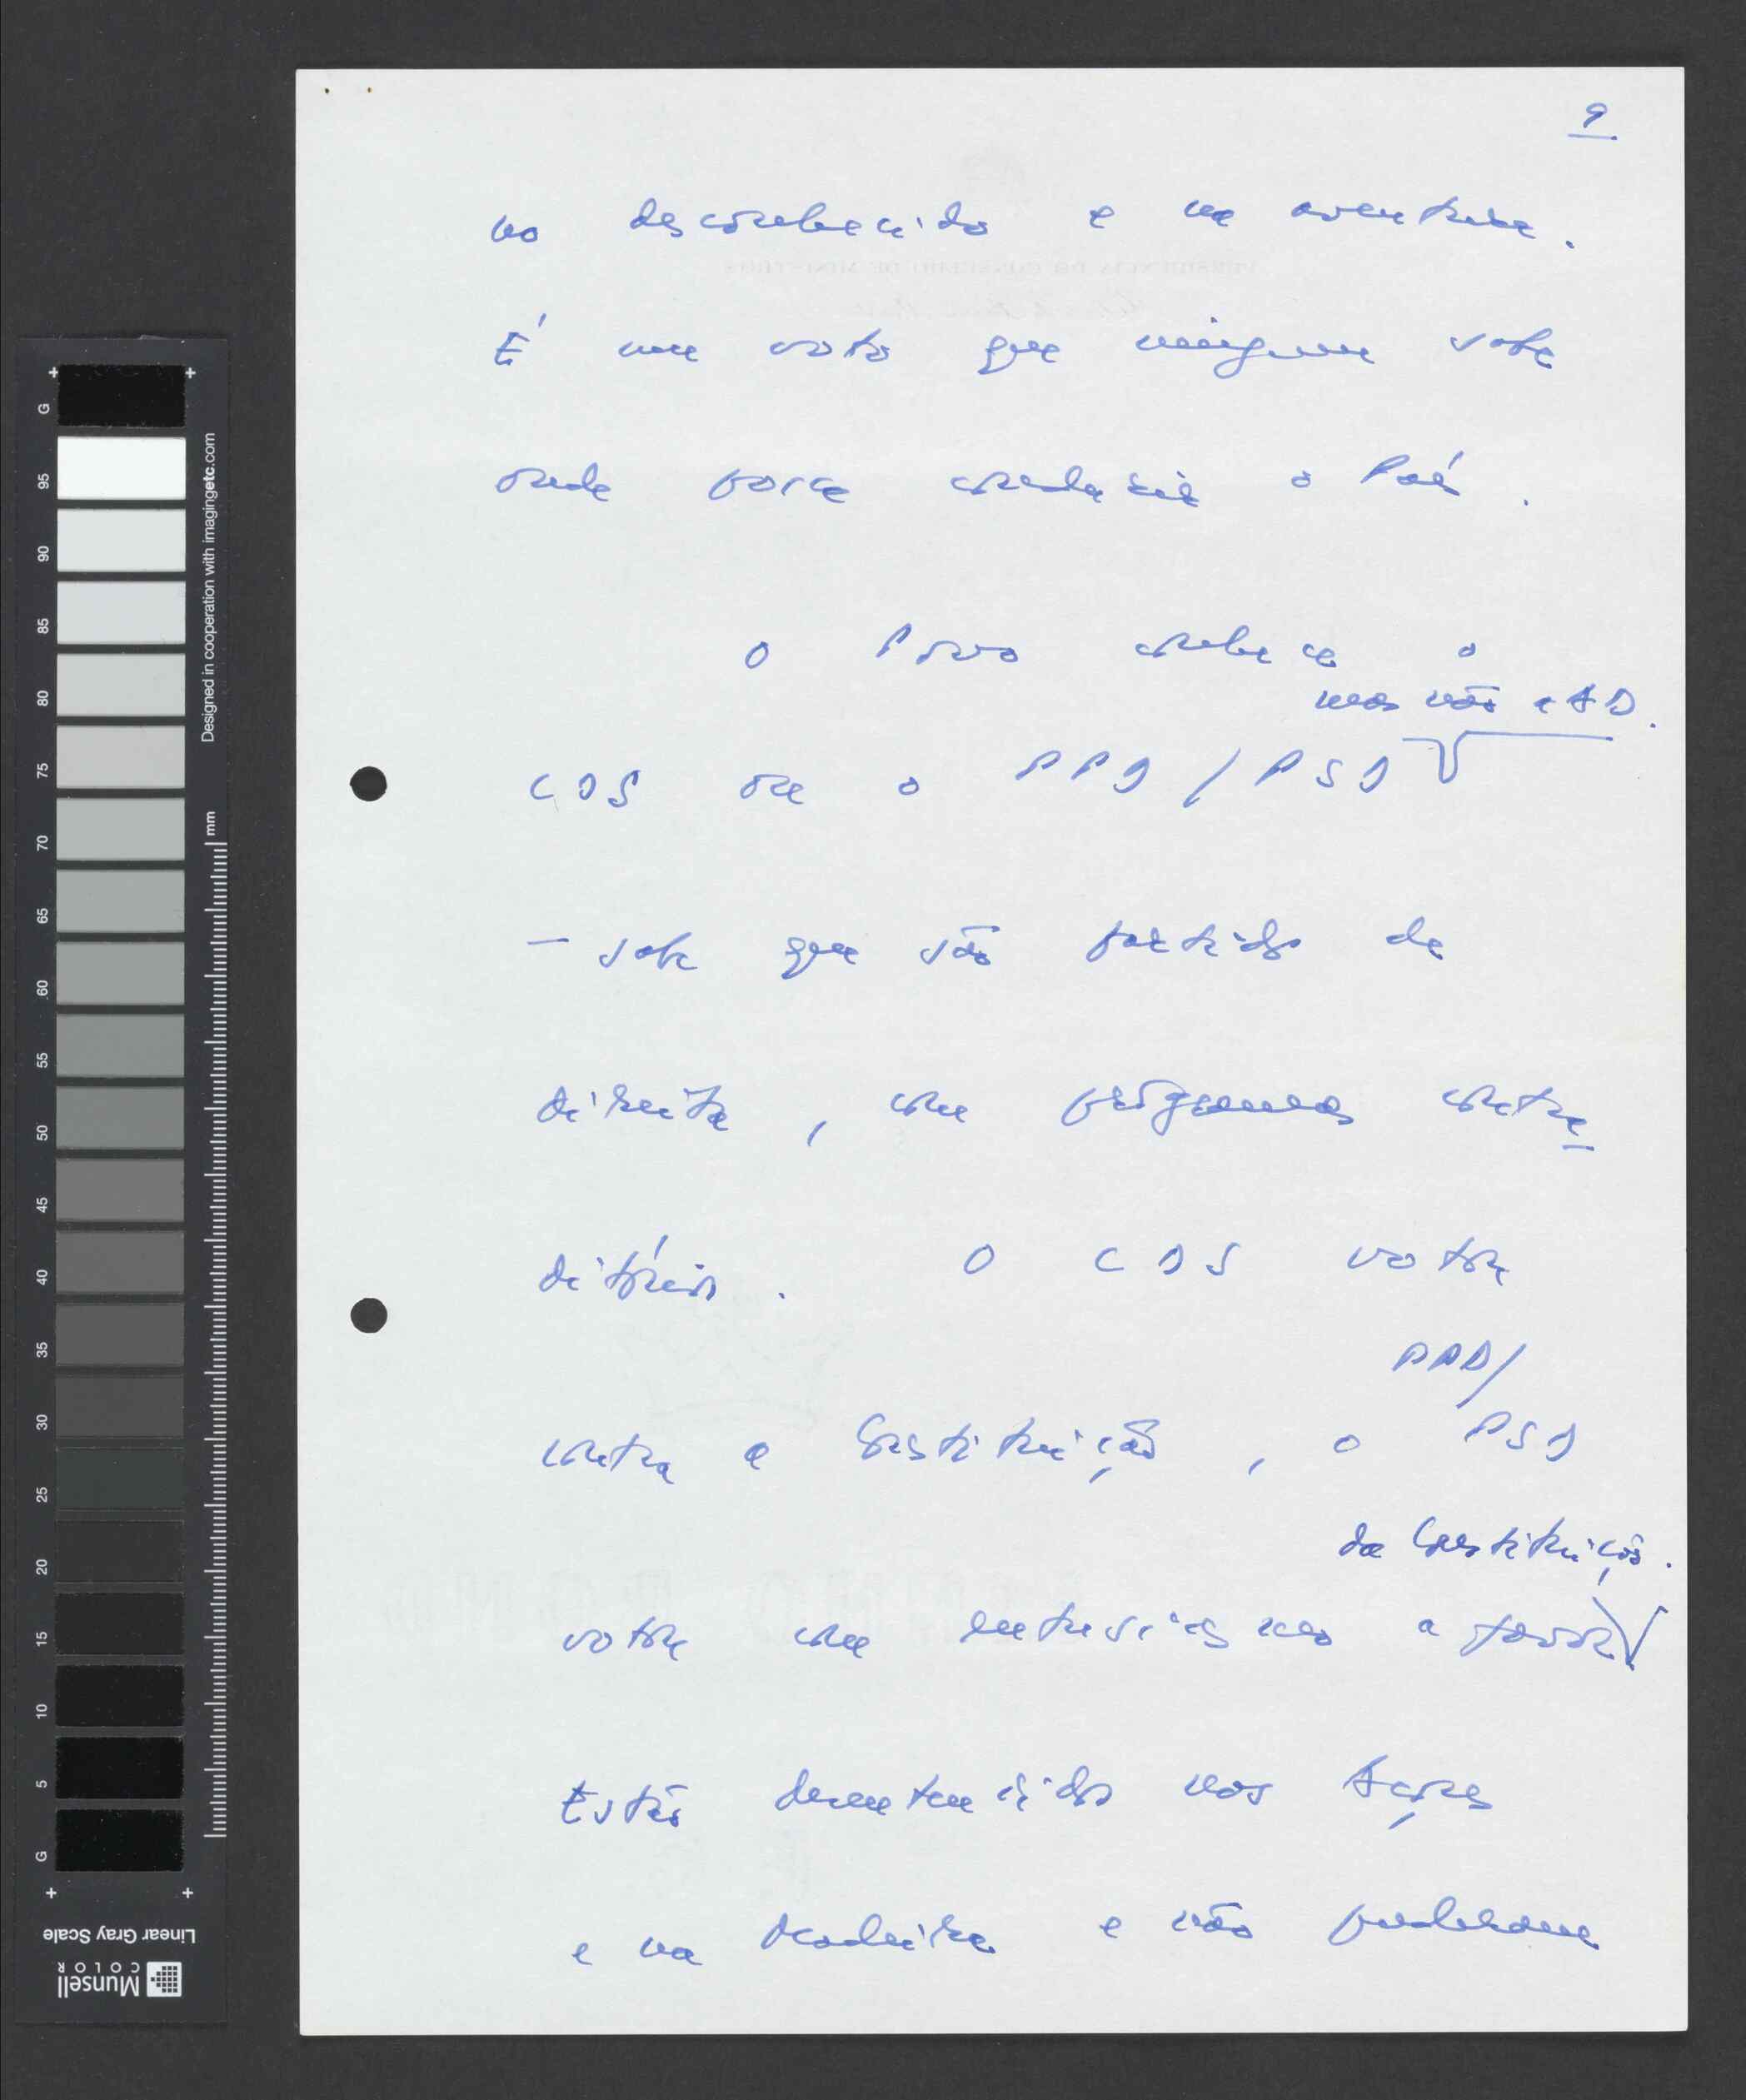 9
no desconhecido e na aventura.
É um voto que ninguém sabe
onde possa conduzir o País.
O Povo conhece o
mas não a AD.
CDS ou o PPD/PSD
- sabe que são partidos de
direita, com programas contra
ditórios. O CDS votou
PPD/
contra a Constituição, o PSD
da Constituição.
votou com entusiasmo a favor
Estão desentendidos nos Açores
e na Madeira e não puderam
PRESIDÊNCIA DO CONSELHO DE MINISTROS
G
95
90
85
80
75
70
65
60
55
50
45
40
35
30
25
20
15
10
5
G
Designed in cooperation with imagingetc.com
mm
Linear Gray Scale
Munsell
COLOR